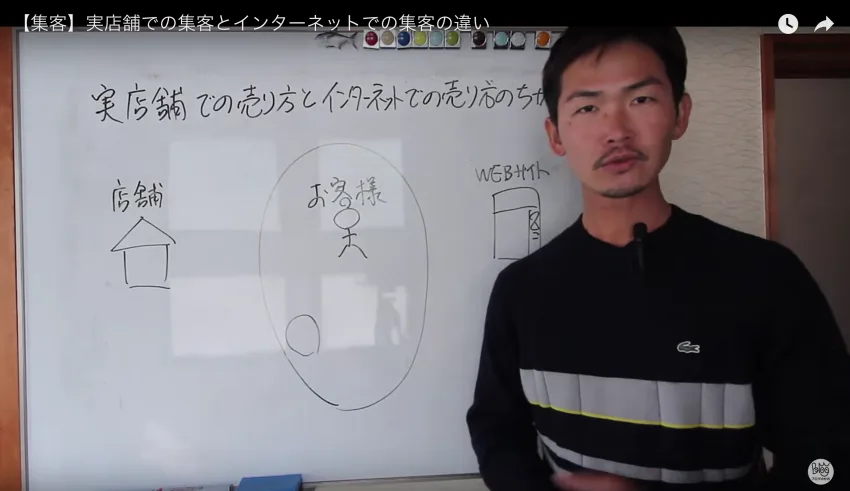 【集客】実店舗での集客とインターネットでの集客の違い
実店舗での売り方とインターネットでの売り方のちが
店舗
お客様
WEBサイト
Blog